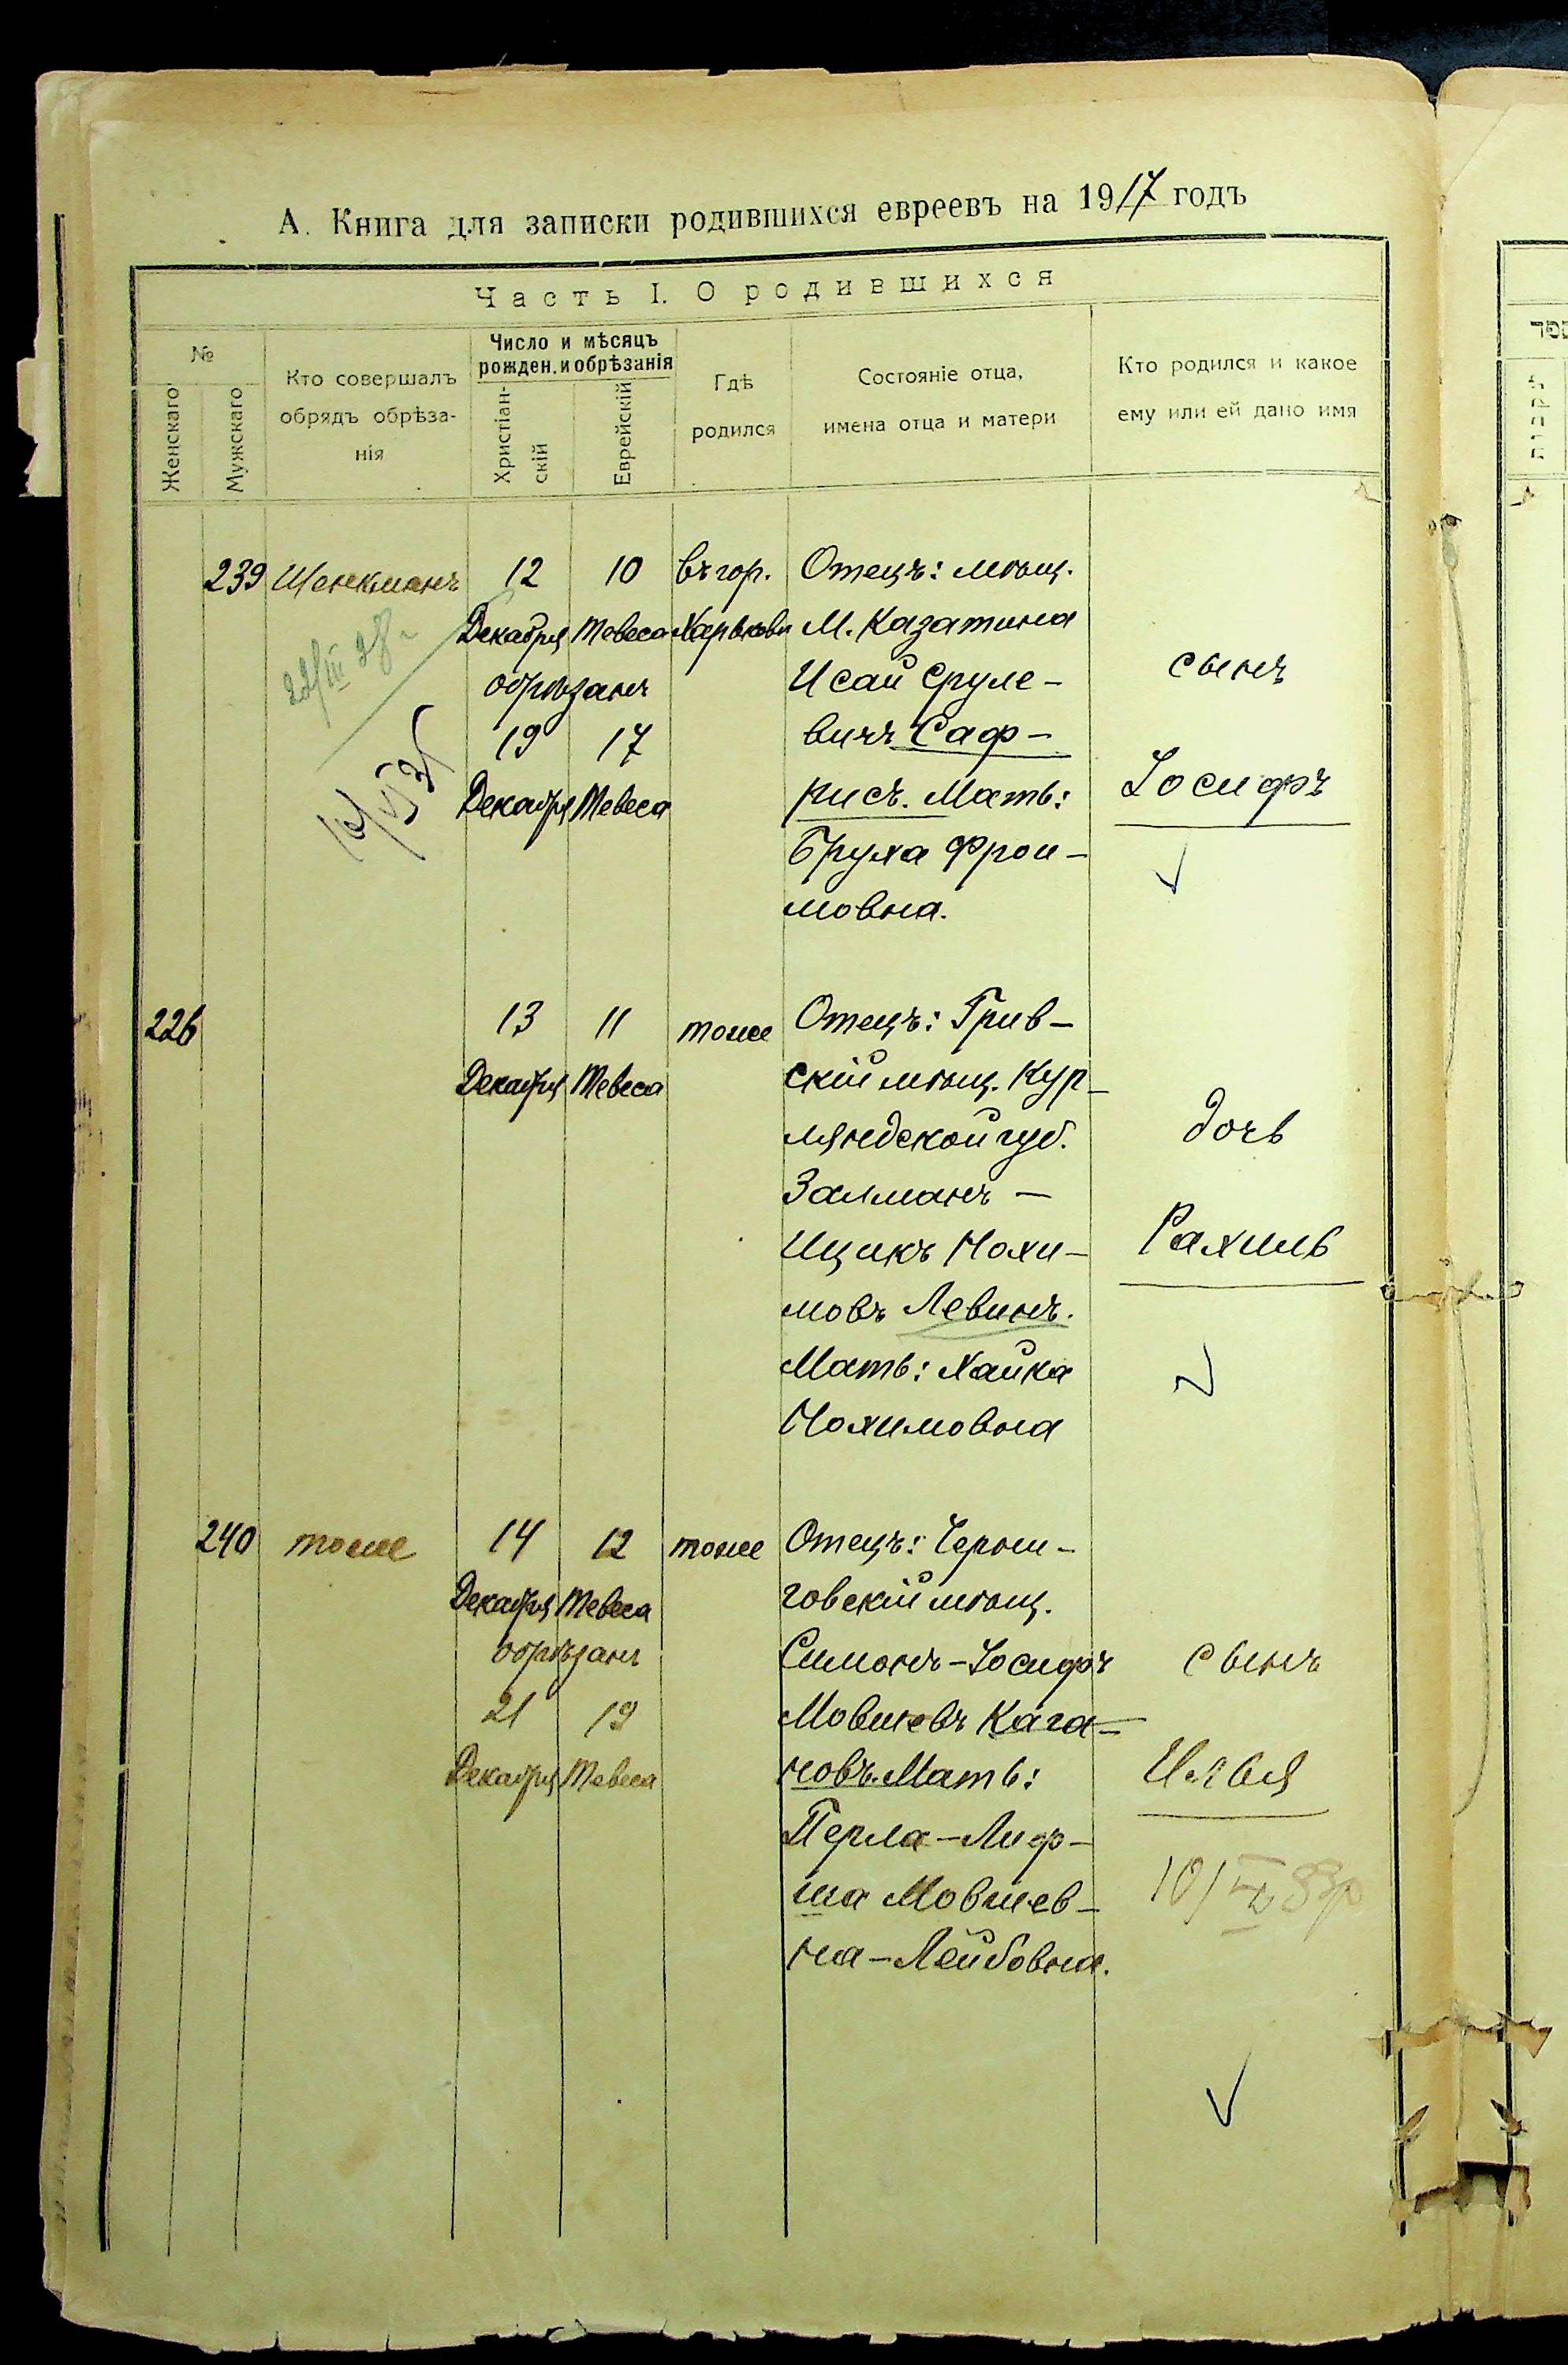 А. Книга для записки родившихся евреевъ на 1917 годъ
Часть I. О родившихся
№
Женскаго
Мужскаго
Кто совершалъ
обрядъ обрѣза-
нія
Число и мѣсяцъ
рожден. и обрѣзанія
Христіан-
скій
Еврейскій
Гдѣ
родился
Состояніе отца,
имена отца и матери
Кто родился и какое
ему или ей дано имя
239 Шенкманъ 12 10 въ гор. Отецъ: мѣщ.
Декабря Тевеса Харьковѣ М. Казатина
обрѣзанъ Исай Сруле-
сынъ
19 17 вичъ Саф-
Декабря Тевеса рисъ. Мать:
Іосифъ
Бруха Фрои-
мовна.
226 13 11 тоже Отецъ: Грив-
Декабря Тевеса скій мѣщ. Кур-
ляндской губ.
дочь
Залманъ-
Ицикъ Нохи-
Рахиль
мовъ Левинъ.
Мать: Хайка
Нохимовна
240 тоже 14 12 тоже Отецъ: Черни-
Декабря Тевеса говскій мѣщ.
обрѣзанъ Симонъ-Іосифъ сынъ
21 19 Мовшевъ Кага-
Декабря Тевеса новъ. Мать:
Илья
Перла-Лиф-
ша Мовшев-
на-Лейбовна.